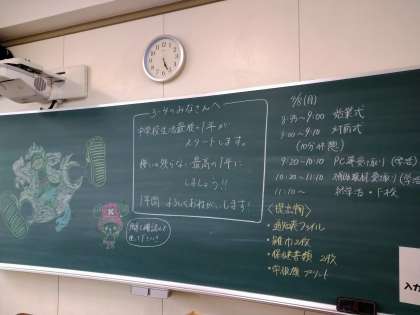 3-4のみなさんへ
中学校生活最後の1年が
スタートします。
悔いの残らない最高の1年に
しましょう!!
1年間 よろしくおねがいします!
(月)
8:35～9:00 始業式
9:00～9:10 対面式
(10分休憩)
9:20～10:10 PC等受け取り (学活)
10:20～11:10
11:10～ 下校
<提出物>
・通知表ファイル
・雑巾2枚
・保健書類 2枚
・プリント
入力